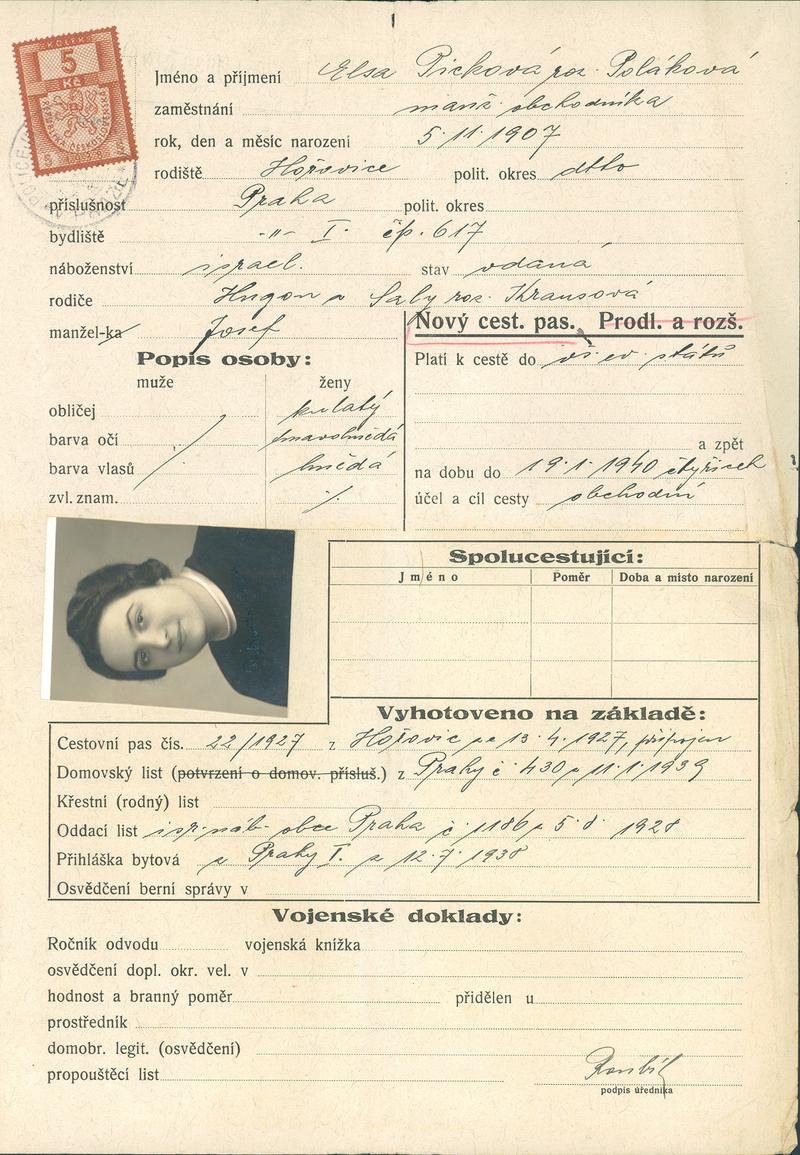 KOLEK
5
Kč
Jméno a příjmení Elsa Picková roz. Poláková
zaměstnání manž. obchodníka
rok, den a měsíc narození 5. 11. 1907
rodiště Hořovice polit. okres dtto
příslušnost Praha polit. okres
bydliště -„- I. čp. 617
náboženství israel. stav vdaná
rodiče Hugon a Saly roz. Krausová
manžel-ka Josef
Nový cest. pas. Prodl. a rozš.
Popis osoby:
Platí k cestě do vš. ev. států
muže ženy
obličej kulatý
barva očí tmavohnědá
a zpět
barva vlasů hnědá
na dobu do 19. 1. 1940 čtyřicet
zvl. znam. ./.
účel a cíl cesty obchodní
Spolucestující:
Jméno Poměr Doba a místo narození
Vyhotoveno na základě:
Cestovní pas čís. 22/1927 z Hořovic ze 13. 4. 1927, připojen
Domovský list (potvrzení o domov. přísluš.) z Prahy č. 430 z 11. 1. 1939
Křestní (rodný) list
Oddací list isr. náb. obce Praha č. 1186 z 5. 8. 1928
Přihláška bytová z Prahy I. z 12. 7. 1938
Osvědčení berní správy v
Vojenské doklady:
Ročník odvodu vojenská knížka
osvědčení dopl. okr. vel. v
hodnost a branný poměr přidělen u
prostředník
domobr. legit. (osvědčení)
propouštěcí list
podpis úředníka